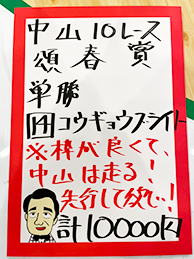 中山10レース
頌春賞
単勝
四コウギョウブライト
※枠が良くて、
中山は走る！
先行して欲で、！
計10000円